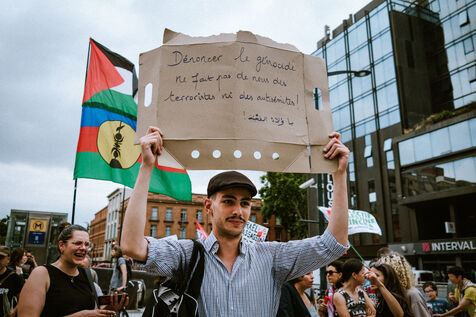 Dénoncer le génocide
ne fait pas de nous des
terroristes ni des antisémites !
M
INTERVAL